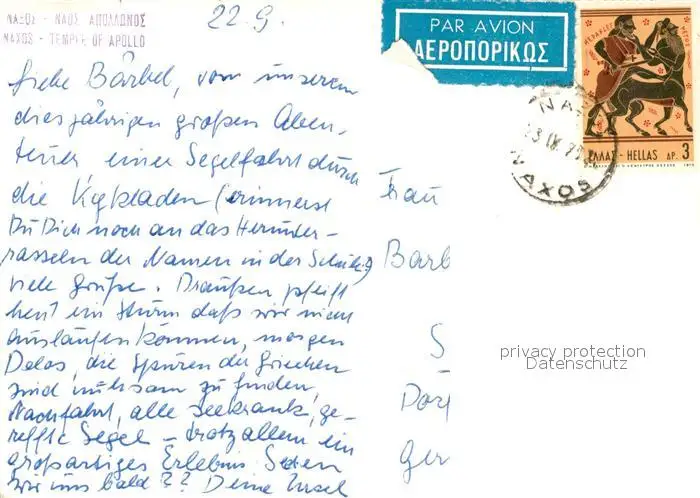 ΝΑΞΟΣ - ΝΑΟΣ ΑΠΟΛΛΩΝΟΣ
NAXOS - TEMPLE OF APOLLO
22.9.
PAR AVION
ΑΕΡΟΠΟΡΙΚΩΣ
ΕΛΛΑΣ - HELLAS ΔΡ. 3
NAXOS
liebe Bärbel, von unserem
diesjährigen großen Aben-
teuer einer Segelfahrt durch
die Kykladen (erinnerst
Du Dich noch an das Herunter-
rasseln der Namen in der Schule?)
viele Grüße. Draußen pfeift
heut ein Sturm daß wir nicht
auslaufen können, morgen
Delos, die Spuren der Griechen
sind mühsam zu finden,
Nachtfahrt, alle seekrank, ge-
reffte Segel - trotz allem ein
großartiges Erlebnis. Sehen
wir uns bald?? Deine Ursel
Frau
Barb
S
Dorf
Ger
privacy protection
Datenschutz